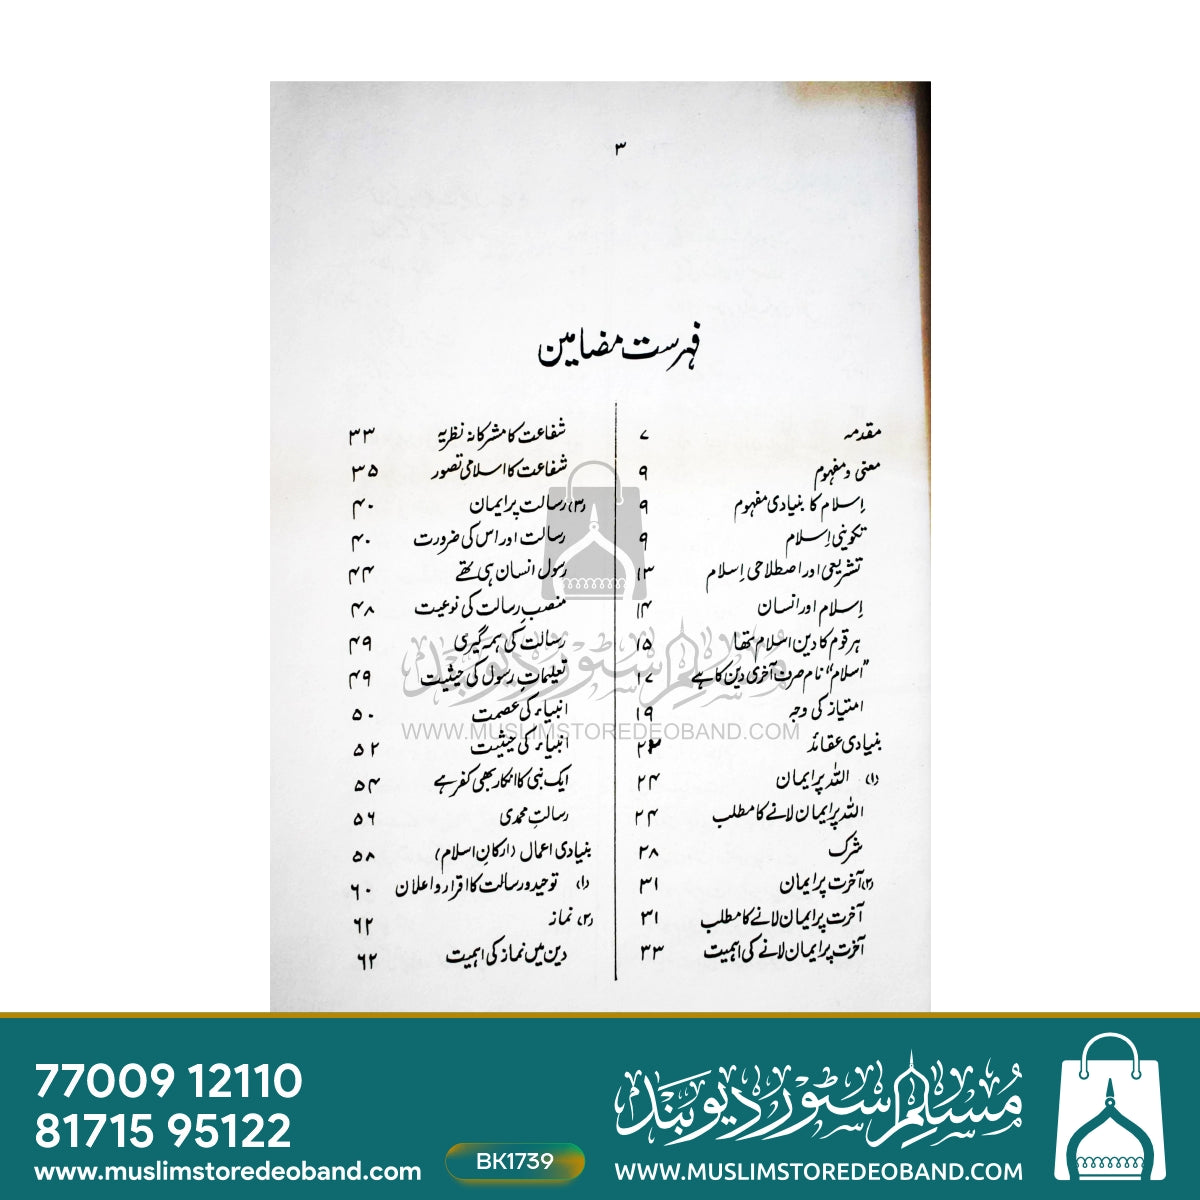 ۳
فہرست مضامین
مقدمہ ۷
معنی و مفہوم ۹
اِسلام کا بنیادی مفہوم ۹
تکوینی اِسلام ۹
تشریعی اور اصطلاحی اِسلام ۱۳
اِسلام اور انسان ۱۴
ہر قوم کا دین اسلام تھا ۱۵
"اسلام" نام صرف آخری دین کا ہے ۱۷
امتیاز کی وجہ ۱۹
بنیادی عقائد ۲۳
(۱) اللہ پر ایمان ۲۴
اللہ پر ایمان لانے کا مطلب ۲۴
شرک ۲۸
(۲) آخرت پر ایمان ۳۱
آخرت پر ایمان لانے کا مطلب ۳۱
آخرت پر ایمان لانے کی اہمیت ۳۳
شفاعت کا مشرکانہ نظریہ ۳۳
شفاعت کا اسلامی تصور ۳۵
(۳) رسالت پر ایمان ۴۰
رسالت اور اس کی ضرورت ۴۰
رسول انسان ہی تھے ۴۴
منصبِ رسالت کی نوعیت ۴۸
رسالت کی ہمہ گیری ۴۹
تعلیماتِ رسول کی حیثیت ۴۹
انبیاء کی عصمت ۵۰
انبیاء کی حیثیت ۵۲
ایک نبی کا انکار بھی کفر ہے ۵۴
رسالتِ محمدی ۵۶
بنیادی اعمال (ارکانِ اسلام) ۵۸
(۱) توحید و رسالت کا اقرار و اعلان ۶۰
(۲) نماز ۶۲
دین میں نماز کی اہمیت ۶۲
مسلم سٹور دیوبند
WWW.MUSLIMSTOREDEOBAND.COM
77009 12110
81715 95122
www.muslimstoredeoband.com
BK1739
مُسلِم سٹور دیوبَند
WWW.MUSLIMSTOREDEOBAND.COM